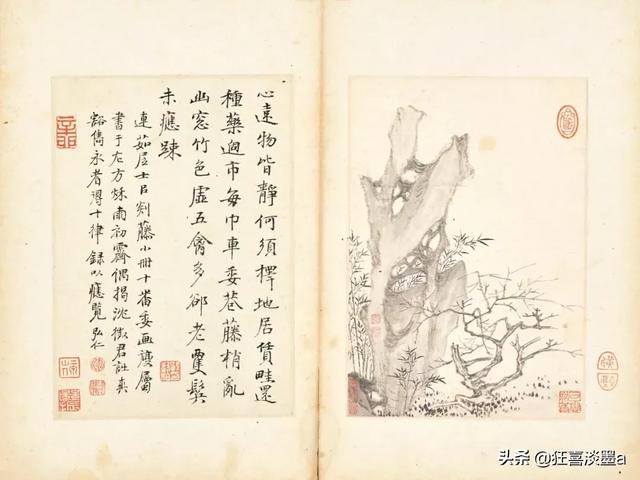 心遠物皆靜何須擇地居賃畦還
種藥過市每巾車委巷藤梢亂
幽窓竹色虛五禽多郤老鬓
未應踈
連茹居士以剡藤小冊十番委画屬
書于左方秌雨初霽偶揭徵君詮真
雋永者得十律錄以應覧弘仁
头条 @狂喜淡墨a